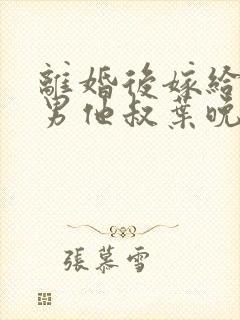 離婚後嫁給
男他叔葉晚
張慕雪